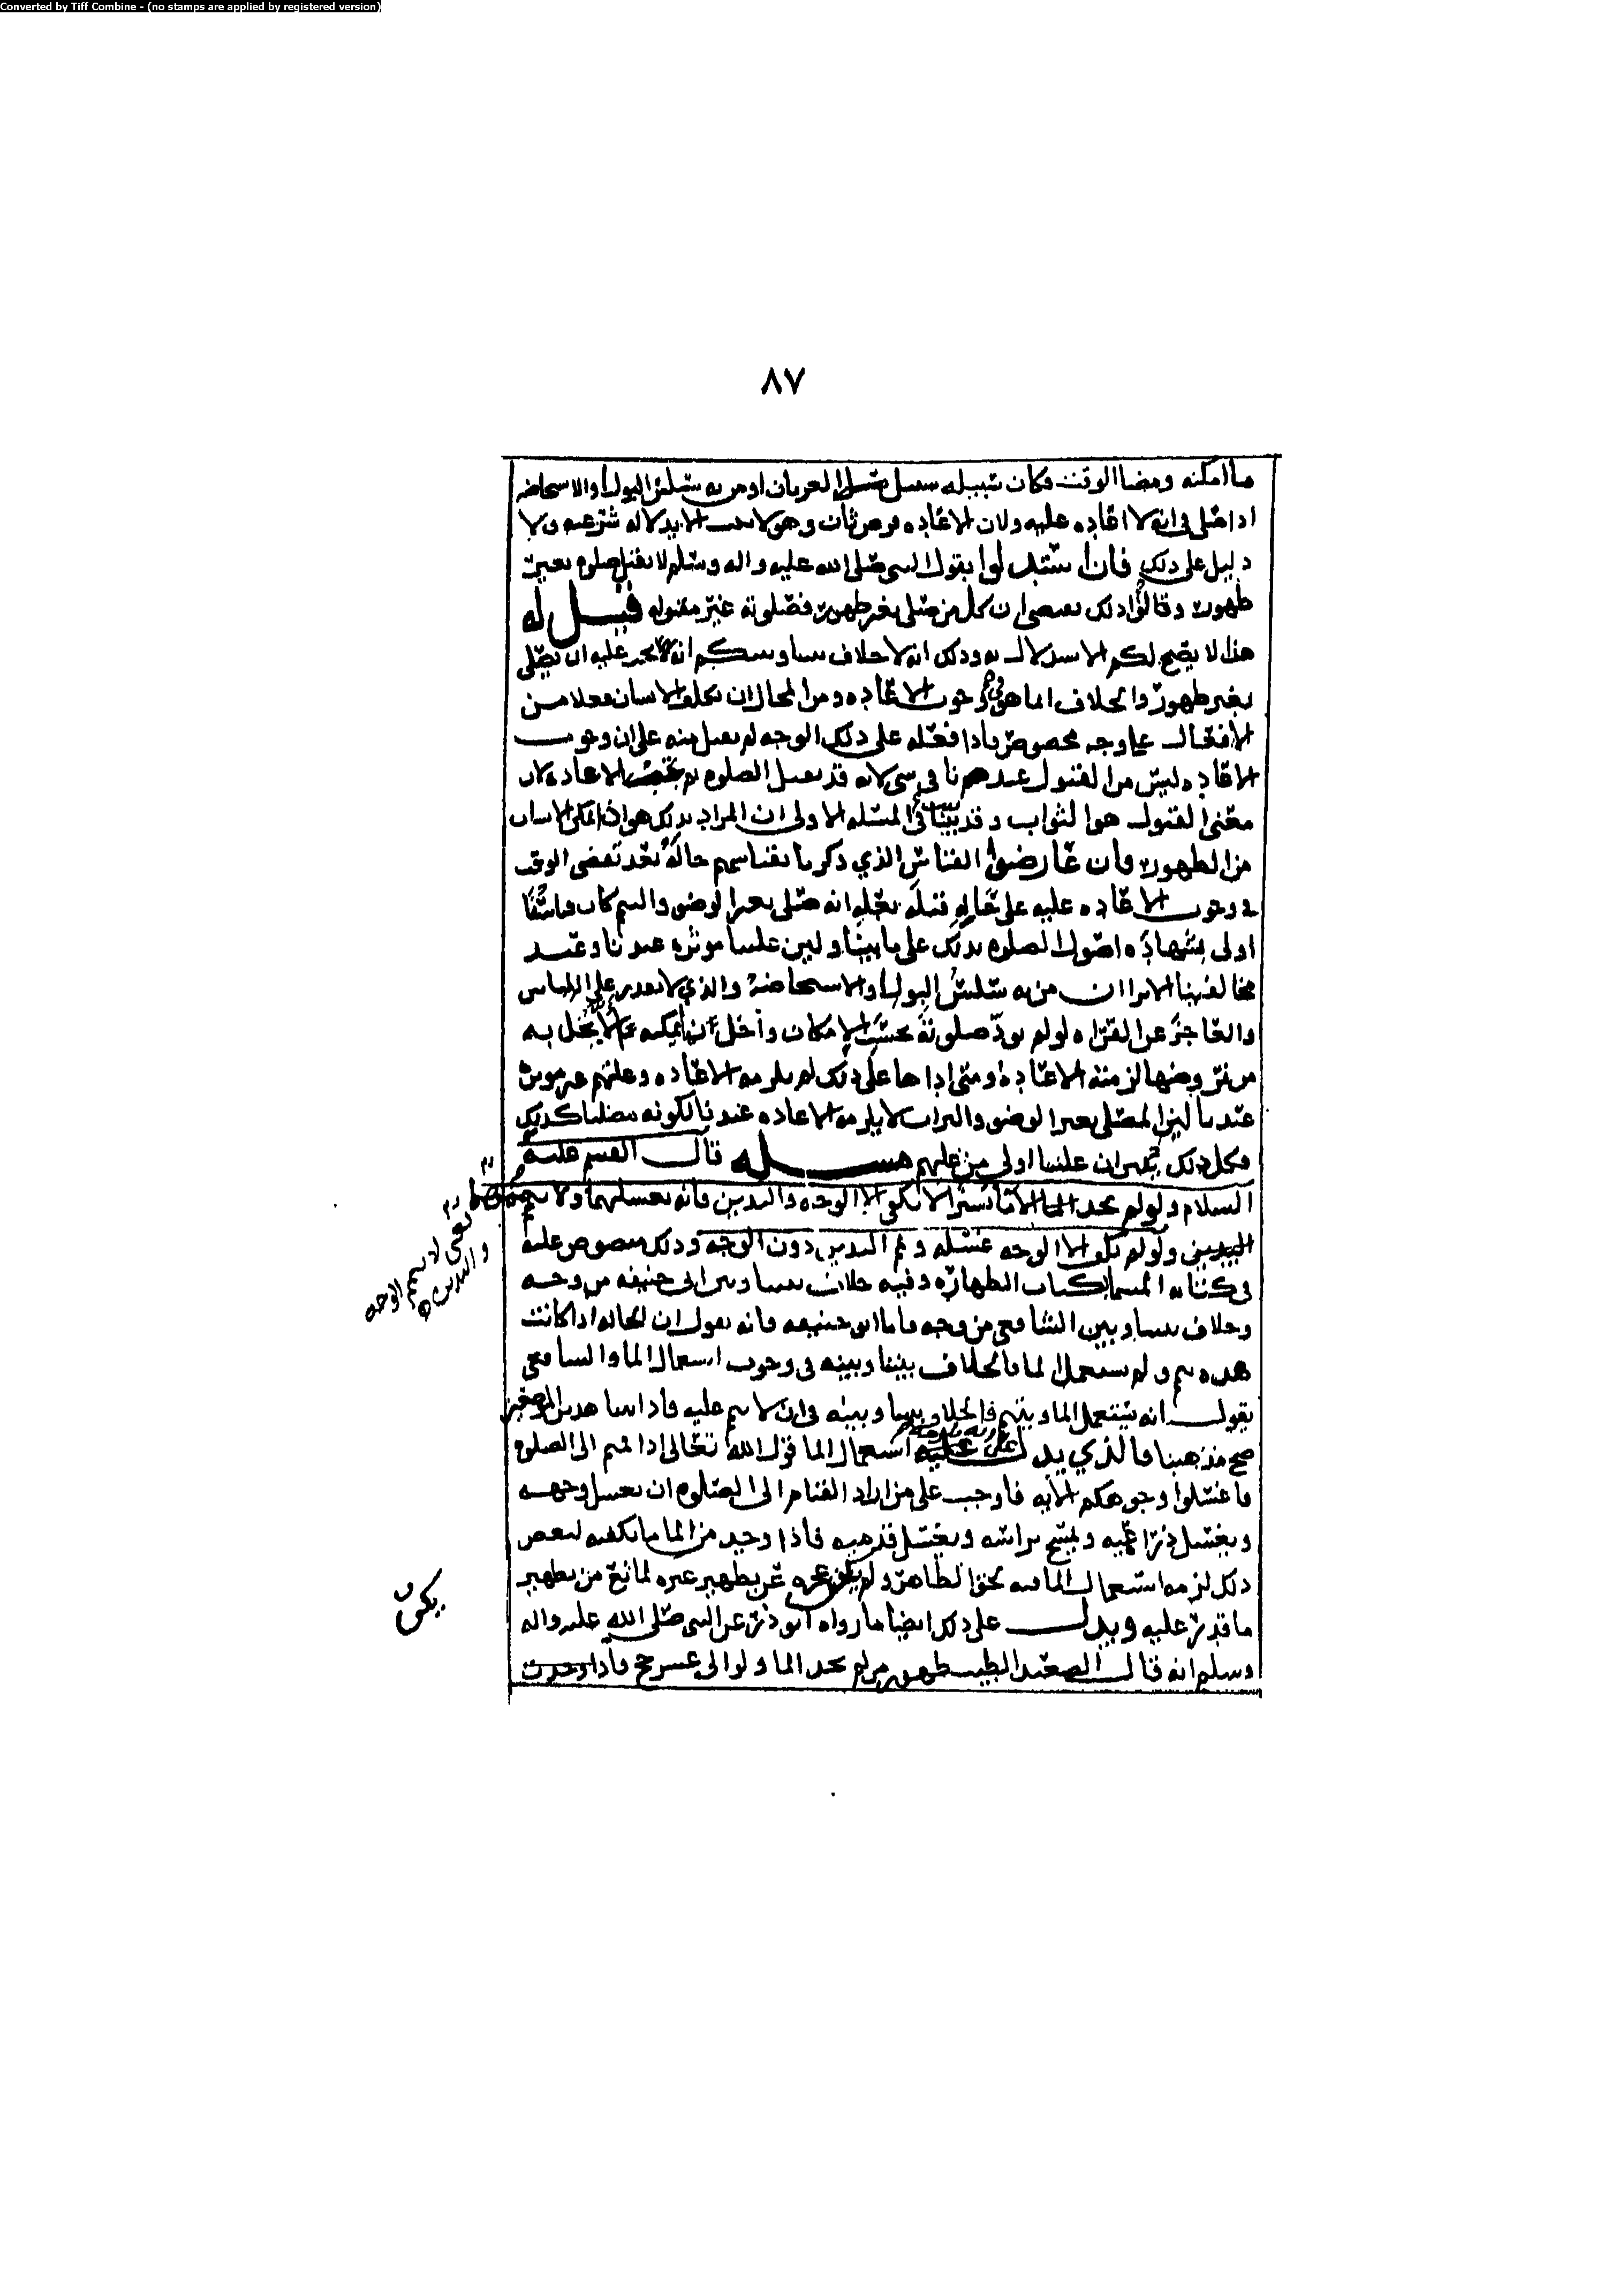 Converted by Tiff Combine - (no stamps are applied by registered version)
٨٧
ما امكنه ومضا الوقت فكان سبيله سبيل العريان او من به سلس البول او الاستحاضه
اذا صلى في انه لا اعاده عليه ولان الاعاده فرض ثان وهو لا يثبت الا بدلاله شرعيه ولا
دليل على ذلك فان استدلوا بقول النبي صلى الله عليه واله وسلم لا تقبل صلوه بغير
طهور وقالوا ذلك يقتضي ان كل من صلى بغير طهور فصلوته غير مقبوله قيل له
هذا لا يصح لكم الاستدلال به وذلك انه لا خلاف بيننا وبينكم انه عليه ان يصلي
بغير طهور والخلاف انما هو في وجوب الاعاده ومن المحال ان يكلف الانسان فعلا من
الافعال على وجه مخصوص فاذا فعله على ذلك الوجه لم يقبل منه على ان وجوب
الاعاده ليس من القبول عندنا في شي لانه قد تقبل الصلوه ثم تجب الاعاده لان
معنى القبول هو الثواب وقد بينا في المسئله الاولى ان المراد بذلك هو اذا تمكن الانسان
من الطهور فان عارضوا القياس الذي ذكرنا بقياسهم حاله بعد تقضي الوقت
في وجوب الاعاده عليه على حاله قبله بعله انه صلى بغير الوضو والتيمم كان قياسنا
اولى بشهاده اصول الصلوه بذلك على ما بينا وليس علتنا موثره عندنا وعند
مخالفينا الا ترا ان من به سلس البول او الاستحاضة والذي لا يقدر على اللباس
والعاجز عن القراه لو لم يود صلوته بحسب الامكان واخل بما يمكنه الا يخل به
من فروضها لزمته الاعادة ومتى اداها على ذلك لم يلزمه الاعاده وعلتهم غير موثرة
عندنا ليس المصلي بغير الوضو والتراب لا يلزمه الاعاده عندنا لكونه مصليا كذلك
فكل ذلك يبين ان علتنا اولى من علتهم مسئله قال القسم عليه
السلام ولو لم يجد الما الا ما نسترا لا يكفي الا الوجه واليدين فانه يغسلهما ولا
اليدين ولو لم يكف الا الوجه غسله ويمم اليدين دون الوجه وذلك منصوص عليه
في كتابه المسما كتاب الطهاره وفيه خلاف بيننا وبين ابي حنيفه من وجه
وخلاف بيننا وبين الشافعي من وجه فاما ابو حنيفه فانه يقول ان الحاله اذا كانت
هذه تيمم ولم يستعمل الما فالخلاف بيننا وبينه في وجوب استعمال الما والشافعي
يقول انه يستعمل الما ويتيمم فالخلاف بيننا وبينه في ان لا تيمم عليه فاذا بينا هذين الموضعين
صح مذهبنا فالذي يدل على استعمال الما قول الله تعالى اذا قمتم الى الصلوه
فاغسلوا وجوهكم الايه فاوجب على من اراد القيام الى الصلوه ان يغسل وجهه
ويغسل ذراعيه ويمسح براسه ويغسل قدميه فاذا وجد من الما ما يكفيه لبعض
ذلك لزمه استعمال الما فيه بحق الظاهر ولم يكن عجزه عن تطهير غيره لمانع من تطهير
ما قدر عليه ويدل على ذلك ايضا ما رواه ابو ذر عن النبي صلى الله عليه واله
وسلم انه قال الصعيد الطيب طهور من لم يجد الما ولو الى عشر حجج فاذا وجدت
يعني لا ييمم الوجه
واليدين
يكن